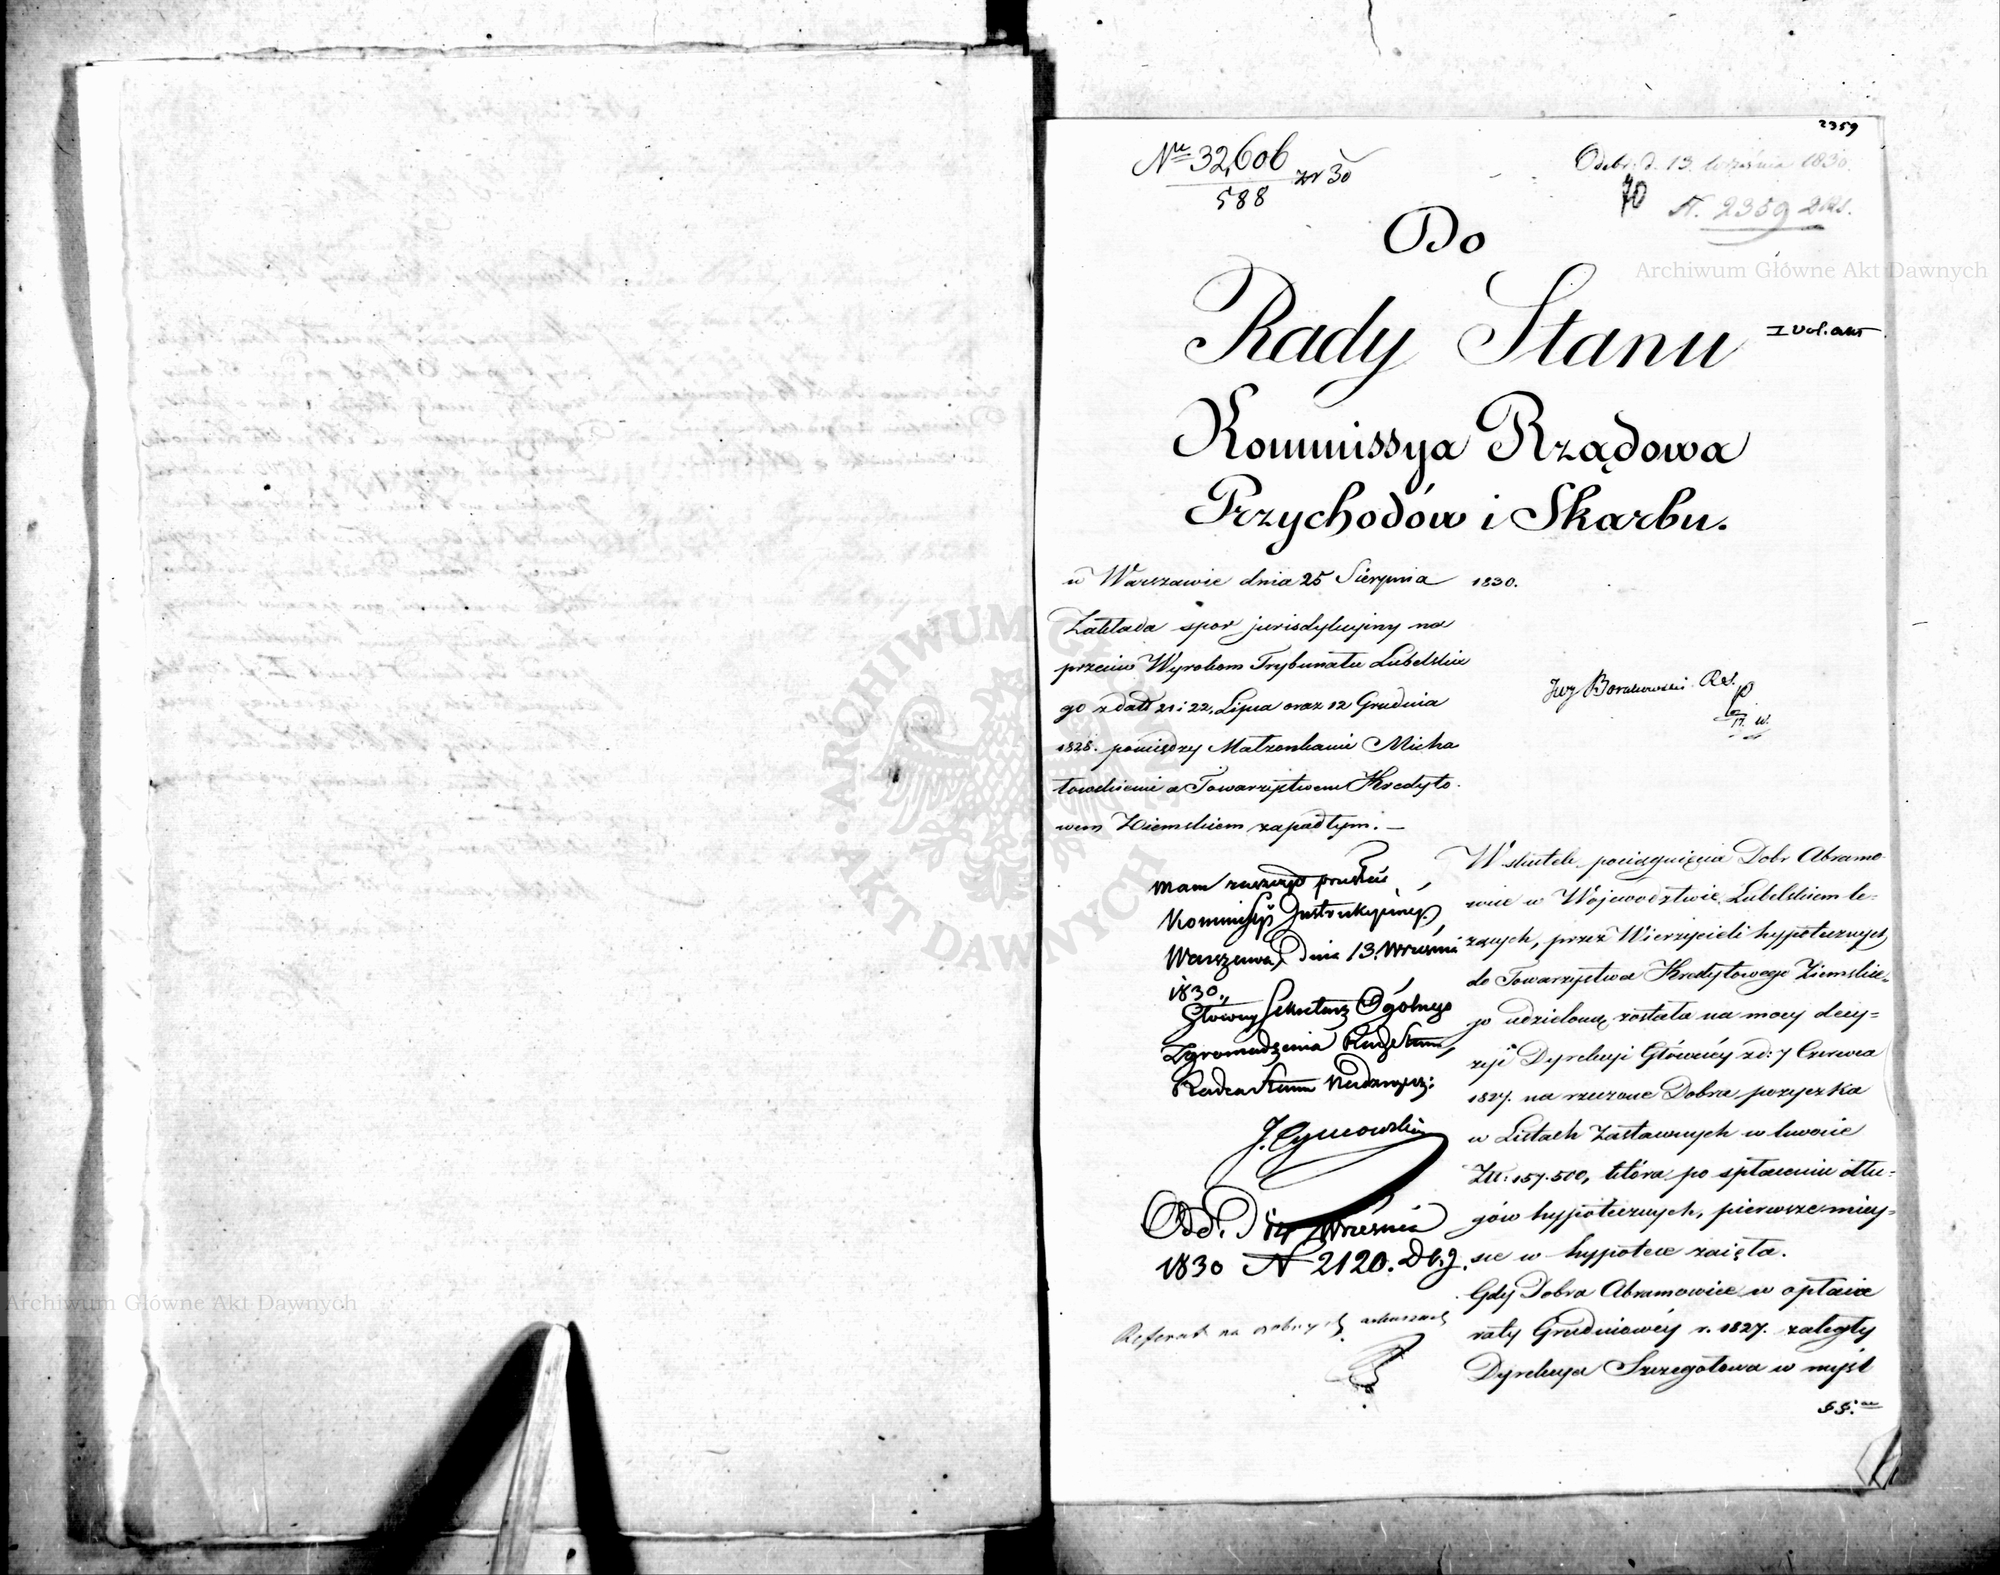 2359
Nro 32,606 / 588 zr 30
Odebr. d. 13 Września 1830.
N. 2359 
Do
Rady Stanu
I vol. akt
Kommissya Rządowa
Przychodów i Skarbu.
w Warszawie dnia 25 Sierpnia 1830.
Zakłada spor jurisdykcyiny na
przeciw Wyrokom Trybunału Lubelskie
go z dat 21 i 22, Lipca oraz 12 Grudnia
1828. pomiędzy Małżonkami Micha
łowskiemi a Towarzystwem Kredyto
wem Ziemskiem zapadłym. —
Mam zaszczyt przesłać
Kommissyi Instrukcyiney
Warszawa, dnia 13. Września
1830.,
Główny Sekretarz Ogólnego
Zgromadzenia Rady Stanu,
Radca Stanu Nadzwycz:
J. Tymowski
Od. D 14 Września
1830 N 2120.
Referat na osobnych arkuszach
W skutek pociągnięcia Dobr Abramo
wice w Województwie Lubelskiem le-
żących, przez Wierzycieli hypotecznych
do Towarzystwa Kredytowego Ziemskie-
go udzieloną została na mocy decy=
zyi Dyrekcyi Główney z d: 7 Czerwca
1827. na rzeczone Dobra pożyczka
w Listach Zastawnych w kwocie
Zł: 157.500, która po spłaceniu dłu-
gów hypotecznych, pierwsze miey-
sce w hypotece zaięła.
Gdy Dobra Abramowice w opłacie
raty Grudniowey r. 1827. zaległy
Dyrekcya Szczegółowa w myśl
§§.
Archiwum Główne Akt Dawnych
Archiwum Główne Akt Dawnych
ARCHIWUM GŁÓWNE AKT DAWNYCH